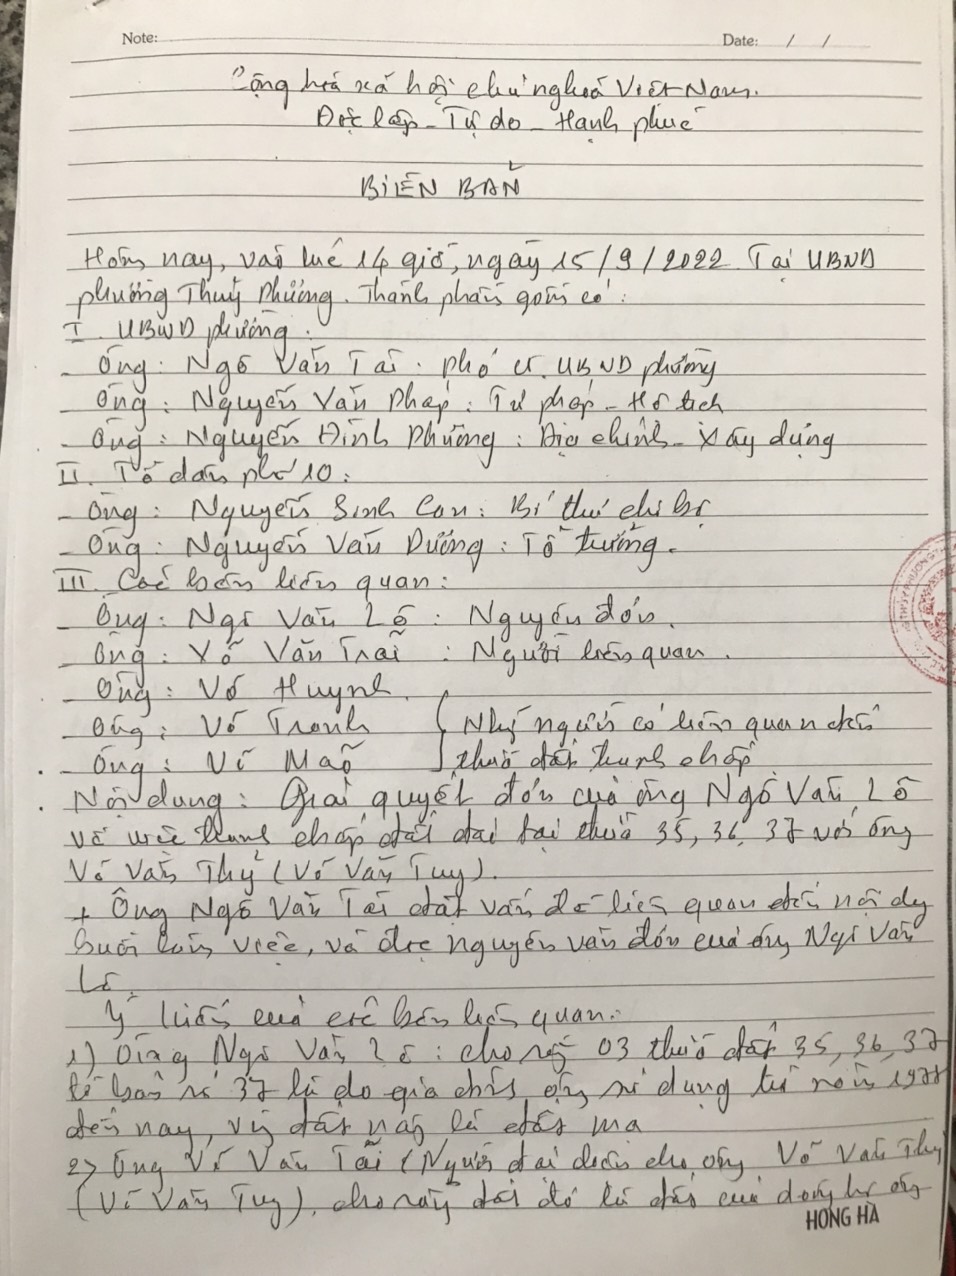 Note:
Date: / /
Cộng hoà xã hội chủ nghĩa Việt Nam.
Độc lập - Tự do - Hạnh phúc
BIÊN BẢN
Hôm nay, vào lúc 14 giờ, ngày 15/9/2022. Tại UBND
phường Thuỷ Phương. Thành phần gồm có:
I. UBND phường:
- Ông: Ngô Văn Tài. Phó CT. UBND phường
- Ông: Nguyễn Văn Pháp: Tư pháp - Hộ tịch
- Ông: Nguyễn Đình Phương: Địa chính - Xây dựng
II. Tổ dân phố 10:
- Ông: Nguyễn Sinh Con: Bí thư chi bộ
- Ông: Nguyễn Văn Dương: Tổ trưởng.
III. Các bên liên quan:
- Ông: Ngô Văn Lô: Nguyên đơn.
- Ông: Võ Văn Trai: Người liên quan.
- Ông: Võ Huynh.
- Ông: Võ Tranh { Những người có liên quan đến
- Ông: Võ Mao thửa đất tranh chấp
Nội dung: Giải quyết đơn của ông Ngô Văn Lô
về việc tranh chấp đất đai tại thửa 35, 36, 37 với ông
Võ Văn Thỷ (Võ Văn Tuy).
+ Ông Ngô Văn Tài đặt vấn đề liên quan đến nội dg
buổi làm việc, và đọc nguyên văn đơn của ông Ngô Văn
Lô.
Ý kiến của các bên liên quan:
1) Ông Ngô Văn Lô: cho rằng 03 thửa đất 35, 36, 37
tờ bản số 37 là do gia đình ông sử dụng từ năm
đến nay, vị đất này là đất ma
2) Ông Võ Văn Tãi (Người đại diện cho ông Võ Văn Thỷ
(Võ Văn Tuy), cho rằng đất đó là đất của dòng họ ông
HONG HA